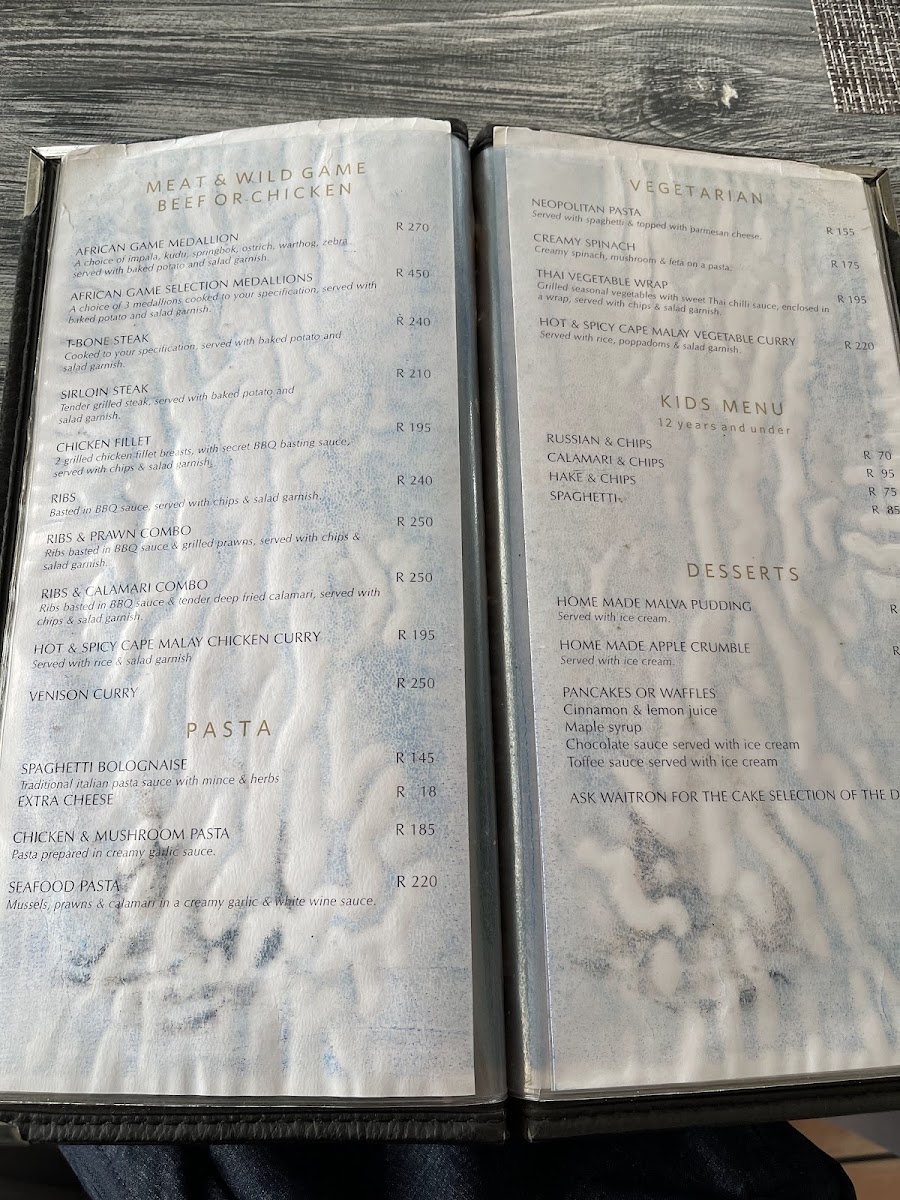 MEAT & WILD GAME
BEEF OR CHICKEN
AFRICAN GAME MEDALLION R 270
A choice of impala, kudu, springbok, ostrich, warthog, zebra,
served with baked potato and salad garnish.
AFRICAN GAME SELECTION MEDALLIONS R 450
A choice of 3 medallions cooked to your specification, served with
baked potato and salad garnish.
T-BONE STEAK R 240
Cooked to your specification, served with baked potato and
salad garnish.
SIRLOIN STEAK R 210
Tender grilled steak, served with baked potato and
salad garnish.
CHICKEN FILLET R 195
2 grilled chicken fillet breasts, with secret BBQ basting sauce,
served with chips & salad garnish.
RIBS R 240
Basted in BBQ sauce, served with chips & salad garnish.
RIBS & PRAWN COMBO R 250
Ribs basted in BBQ sauce & grilled prawns, served with chips &
salad garnish.
RIBS & CALAMARI COMBO R 250
Ribs basted in BBQ sauce & tender deep fried calamari, served with
chips & salad garnish.
HOT & SPICY CAPE MALAY CHICKEN CURRY R 195
Served with rice & salad garnish
VENISON CURRY R 250
PASTA
SPAGHETTI BOLOGNAISE R 145
Traditional italian pasta sauce with mince & herbs
EXTRA CHEESE R 18
CHICKEN & MUSHROOM PASTA R 185
Pasta prepared in creamy garlic sauce.
SEAFOOD PASTA R 220
Mussels, prawns & calamari in a creamy garlic & white wine sauce.
VEGETARIAN
NEOPOLITAN PASTA R 155
Served with spaghetti & topped with parmesan cheese.
CREAMY SPINACH R 175
Creamy spinach, mushroom & feta on a pasta.
THAI VEGETABLE WRAP R 195
Grilled seasonal vegetables with sweet Thai chilli sauce, enclosed in
a wrap, served with chips & salad garnish.
HOT & SPICY CAPE MALAY VEGETABLE CURRY R 220
Served with rice, poppadoms & salad garnish.
KIDS MENU
12 years and under
RUSSIAN & CHIPS R 70
CALAMARI & CHIPS R 95
HAKE & CHIPS R 75
SPAGHETTI R 85
DESSERTS
HOME MADE MALVA PUDDING R
Served with ice cream.
HOME MADE APPLE CRUMBLE R
Served with ice cream.
PANCAKES OR WAFFLES
Cinnamon & lemon juice
Maple syrup
Chocolate sauce served with ice cream
Toffee sauce served with ice cream
ASK WAITRON FOR THE CAKE SELECTION OF THE D